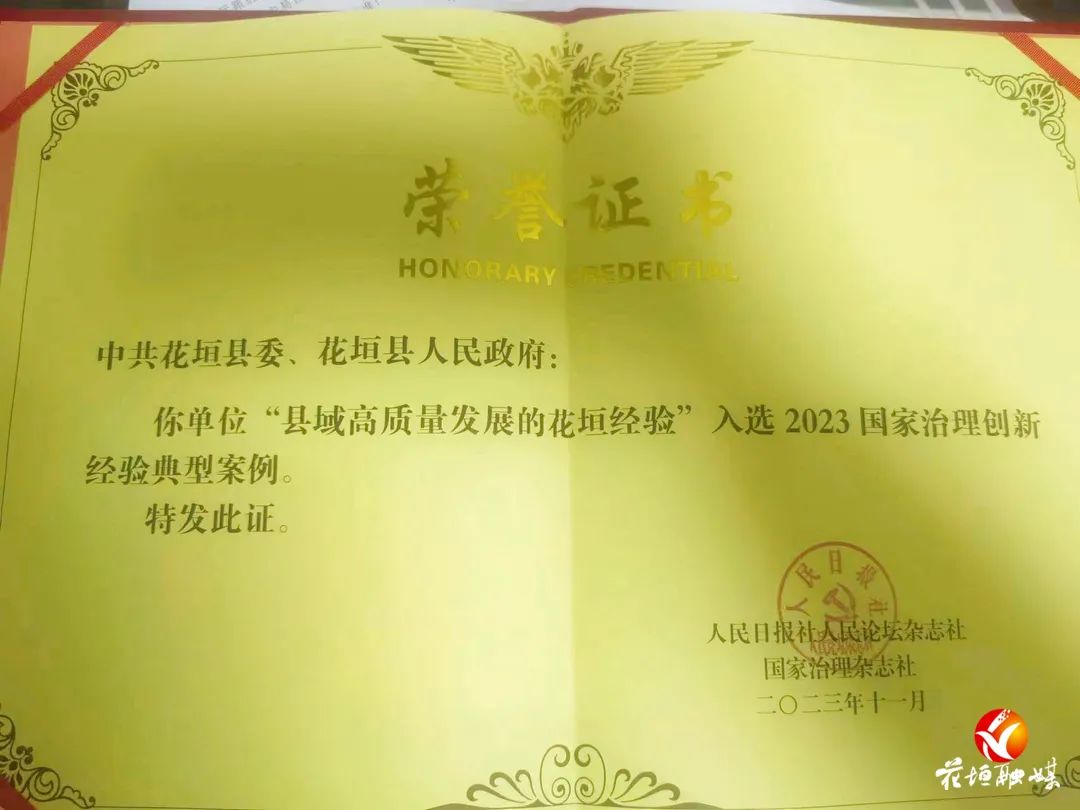 荣誉证书
HONORARY CREDENTIAL
中共花垣县委、花垣县人民政府：
你单位“县域高质量发展的花垣经验”入选2023国家治理创新
经验典型案例。
特发此证。
人民日报社
人民日报社人民论坛杂志社
国家治理杂志社
二〇二三年十一月
花垣融媒